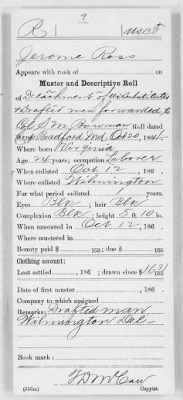 9
R | USCT
Jerome Ross
Appears with rank of on
Muster and Descriptive Roll
of Detachment of substitutes
& Drafted men forwarded to
Col S. M. Bowman Roll dated
Camp Bradford Md Oct 20, 1864.
Where born Virginia
Age 24 years; occupation Laborer
When enlisted Oct 12, 186
Where enlisted Wilmington
For what period enlisted 1 years.
Eyes Blk; hair Blk
Complexion Blk; height 5 ft. 10 in.
When mustered in Oct 12, 186
Where mustered in
Bounty paid $ 100; due $ 100
Clothing account:
Last settled , 186 ; drawn since $ 1631 100
Date of first muster , 186 .
Company to which assigned
Remarks: Drafted man
Wilmington Del
Book mark:
Copyist.